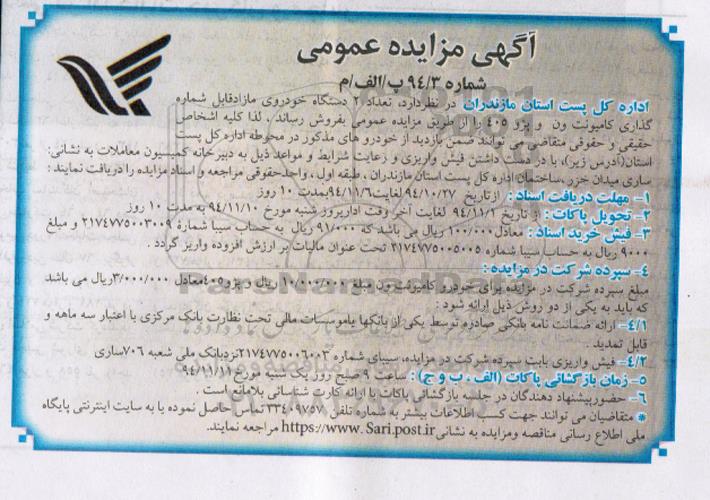 آگهی مزایده عمومی
شماره ۹٤/۳ ب/الف/م
اداره کل پست استان مازندران در نظردارد، تعداد ۲ دستگاه خودروی مازادقابل شماره
گذاری کامیونت ون و پژو ٤۰۵ را از طریق مزایده عمومی بفروش رساند ، لذا کلیه اشخاص
حقیقی و حقوقی متقاضی می توانند ضمن بازدید از خودرو های مذکور در محوطه اداره کل پست
استان(آدرس زیر)، با در دست داشتن فیش واریزی و رعایت شرایط و مواعد ذیل به دبیرخانه کمیسیون معاملات به نشانی:
ساری میدان خزر ،ساختمان اداره کل پست استان مازندران ، طبقه اول ، واحدحقوقی مراجعه و اسناد مزایده را دریافت نمایند :
۱- مهلت دریافت اسناد : ازتاریخ ۹٤/۱۰/۲۷ لغایت۹٤/۱۱/٦بمدت ۱۰ روز
۲- تحویل پاکات : از تاریخ ۹٤/۱۱/۱ لغایت آخر وقت اداریروز شنبه مورخ ۹٤/۱۱/۱۰ به مدت ۱۰ روز
۳- فیش خرید اسناد : معادل ۱۰۰/۰۰۰ ریال می باشد که ۹۱/۰۰۰ ریال به حساب سیبا شماره ۲۱۷٤۷۷۵۰۰۳۰۰۹ و مبلغ
۹۰۰۰ ریال به حساب سیبا شماره ۲۱۷٤۷۷۵۰۰۵۰۰۵ تحت عنوان مالیات بر ارزش افزوده واریز گردد .
٤- سپرده شرکت در مزایده :
مبلغ سپرده شرکت در مزایده برای خودرو کامیونت ون مبلغ ۱۰/۰۰۰/۰۰۰ ریال و پژو ٤۰۵معادل ۳/۰۰۰/۰۰۰ریال می باشد
که باید به یکی از دو روش ذیل ارائه شود :
٤/۱- ارائه ضمانت نامه بانکی صادره توسط یکی از بانکها یاموسسات مالی تحت نظارت بانک مرکزی با اعتبار سه ماهه و
قابل تمدید .
٤/۲- فیش واریزی بابت سپرده شرکت در مزایده، سیبای شماره ۲۱۷٤۷۷۵۰۰٦۰۰۳نزدبانک ملی شعبه ۷۰٦ساری
۵- زمان بازگشائی پاکات (الف ، ب و ج) : ساعت ۹ صبح روز یک شنبه مورخ ۹٤/۱۱/۱۱
٦- حضورپیشنهاد دهندگان در جلسه بازگشائی پاکات با ارائه کارت شناسائی بلامانع است .
* متقاضیان می توانند جهت کسب اطلاعات بیشتر به شماره تلفن ۳۳٤۰۹۷۵۷ تماس حاصل نموده یا به سایت اینترنتی پایگاه
ملی اطلاع رسانی مناقصه ومزایده به نشانی https://www.Sari.post.ir مراجعه نمایند.